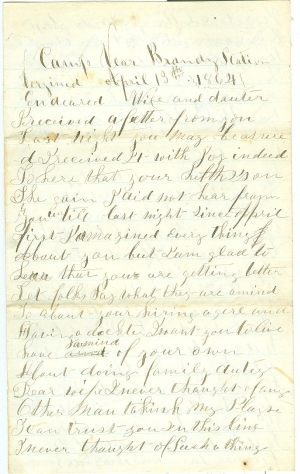 Camp Near Brandy Station
Verginid April 13th 1864
Endeared Wife and dauter
I received a letter from you
Last night you may be asure
d I received It with Joy indeed
To here that your helth is on
The gain I did not hear from
you till last night Since April
first I amagined every thing
About you but I am glad to
Lean that you are getting better
Let folks Say what they are amind
To about your hiring a gerl and
Having a docter I want you to live
have a mind of your own
About doing family duty
Dear wife I never thought of any
Other man taking my Plase
I can trust you In this line
I never thought of Such a thing